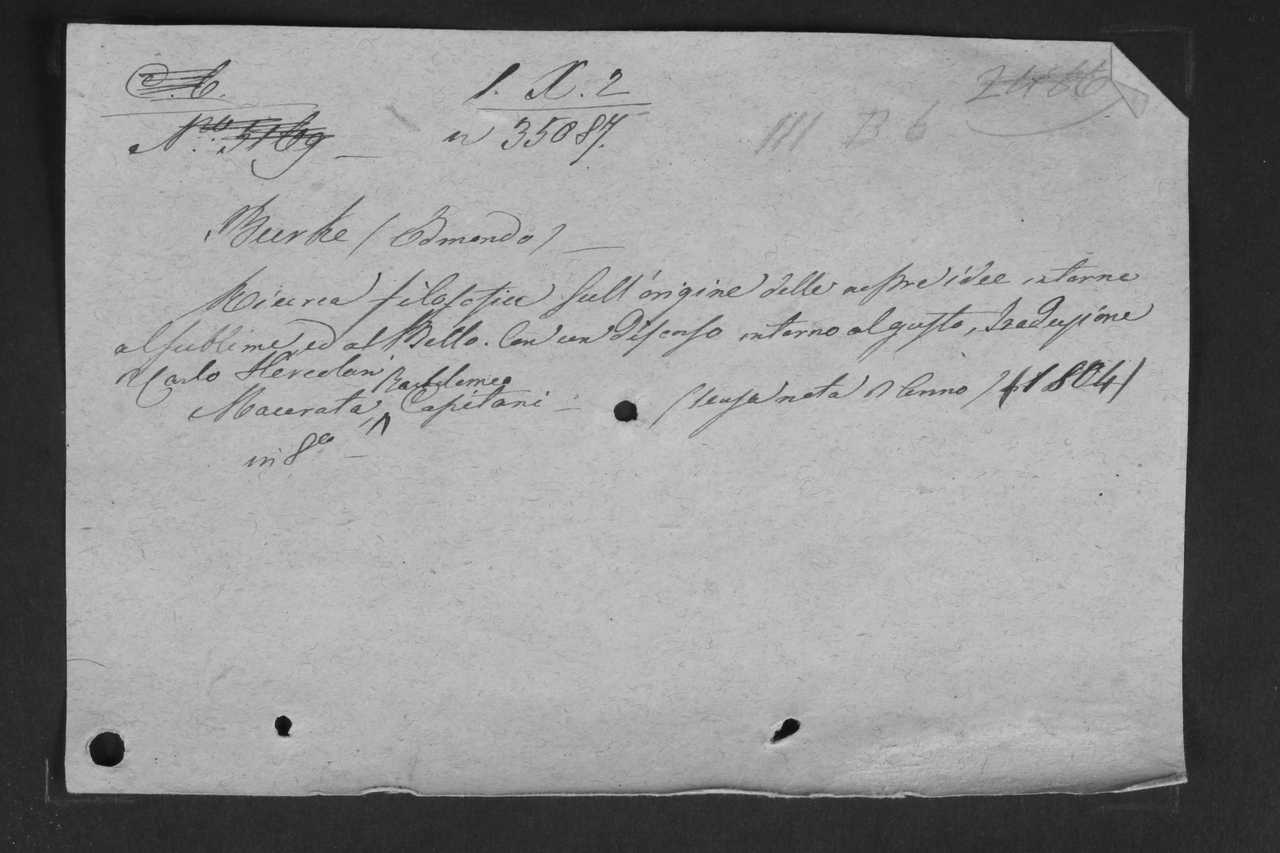 C. C. 1. X. 2
N.ro 5169 n 35087. III B 6
Burke (Edmondo)
Ricerca filosofica sull'origine delle nostre idee intorno
al sublime, ed al Bello. Con un Discorso intorno al gusto, Traduzione
Carlo Hercolani
Macerata, Bartolomeo Capitani - (senza nota d'anno) (1804)
in 8°